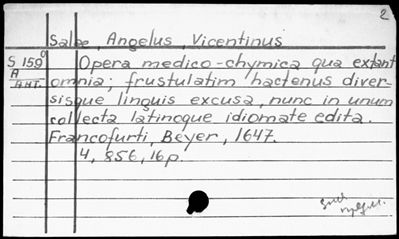 2
Salae, Angelus, Vicentinus
S 159
A
ANT.
Opera medico-chymica qua extant
omnia; frustulatim hactenus diver-
sisque linguis excusa, nunc in unum
collecta latinoque idiomate edita.
Francofurti, Beyer, 1647.
4, 856, 16p.